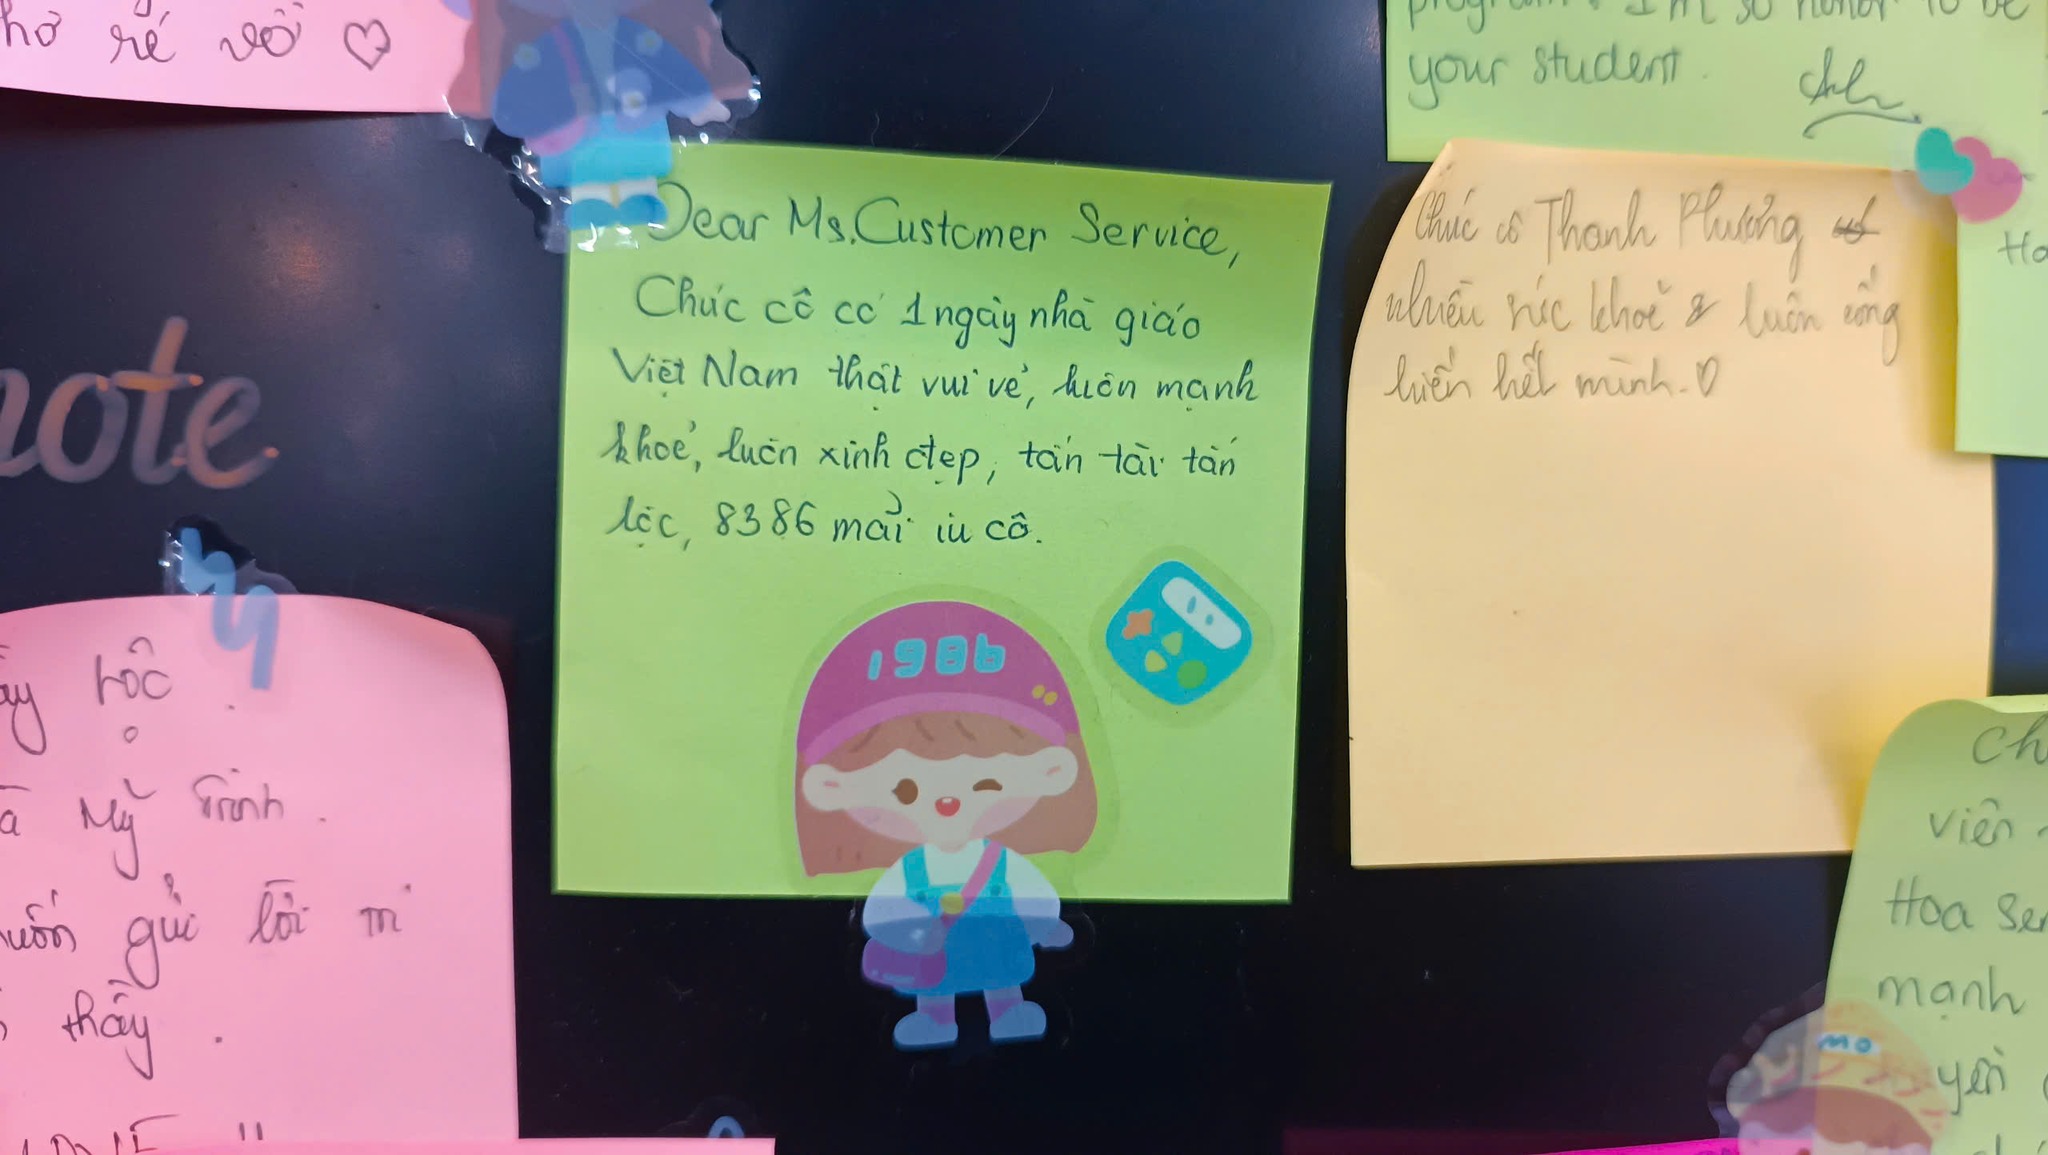 hơ rế vô
program. I'm so honor to be
your student.
Dear Ms.Customer Service,
Chúc cô có 1 ngày nhà giáo
Việt Nam thật vui vẻ, luôn mạnh
khoẻ, luôn xinh đẹp, tấn tài tấn
lộc, 8386 mãi iu cô.
1986
Chúc cô Thanh Phương
nhiều sức khoẻ & luôn cống
hiến hết mình.
note
Lộc.
Mỹ Trinh.
muốn gửi lời
thầy.
viên
Hoa Sen
mạnh
yên
MO